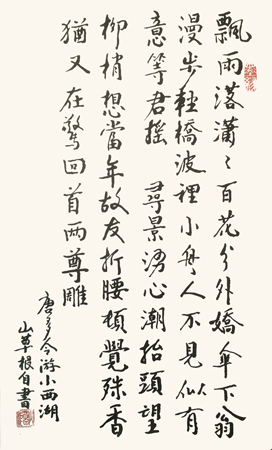 飄雨落瀟〻百花分外嬌傘下翁
漫步橋波裡小舟人不見似有
意等君搖 尋景湧心潮抬頭望
柳梢想當年故友折腰頓覺殊香
猶又在驚回首兩尊雕
唐多令游小西湖
山草根自書